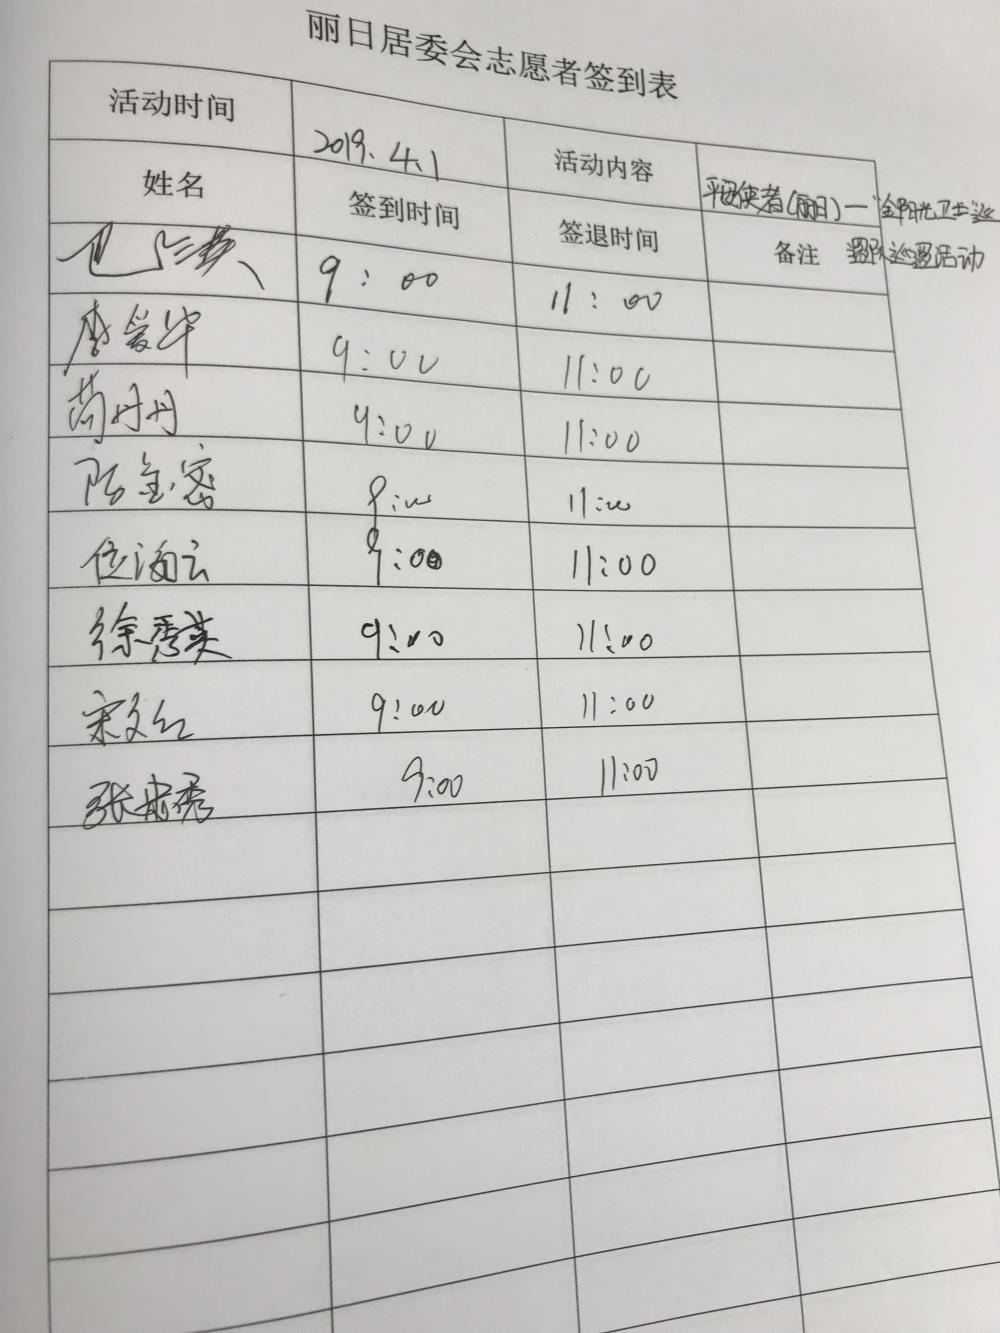 丽日居委会志愿者签到表
活动时间 2019.4.1 活动内容 平安使者(丽日)一金阳光卫士巡
逻队巡逻活动
姓名 签到时间 签退时间 备注
9:00 11:00
唐爱华 9:00 11:00
苟丹丹 9:00 11:00
陈金密 9:00 11:00
位海云 9:00 11:00
徐秀英 9:00 11:00
宋文红 9:00 11:00
张秀 9:00 11:00